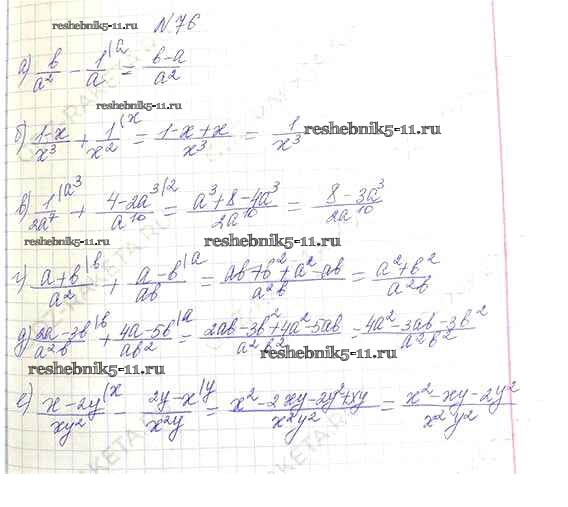 reshebnik5-11.ru № 76
а) b/a² - 1/a |a = b-a/a²
reshebnik5-11.ru
б) 1-x/x³ + 1/x² |x = 1-x+x/x³ = 1/x³ reshebnik5-11.ru
в) 1/2a⁷ |a³ + 4-2a³/a¹⁰ |2 = a³+8-4a³/2a¹⁰ = 8-3a³/2a¹⁰
reshebnik5-11.ru reshebnik5-11.ru
г) a+b/a² |b + a-b/ab |a = ab+b²+a²-ab/a²b = a²+b²/a²b
д) 2a-3b/a²b |b + 4a-5b/ab² |a = 2ab-3b²+4a²-5ab/a²b² = 4a²-3ab-3b²/a²b²
reshebnik5-11.ru reshebnik5-11.ru
е) x-2y/xy² |x - 2y-x/x²y |y = x²-2xy-2y²+xy/x²y² = x²-xy-2y²/x²y²
reshebnik5-11.ru